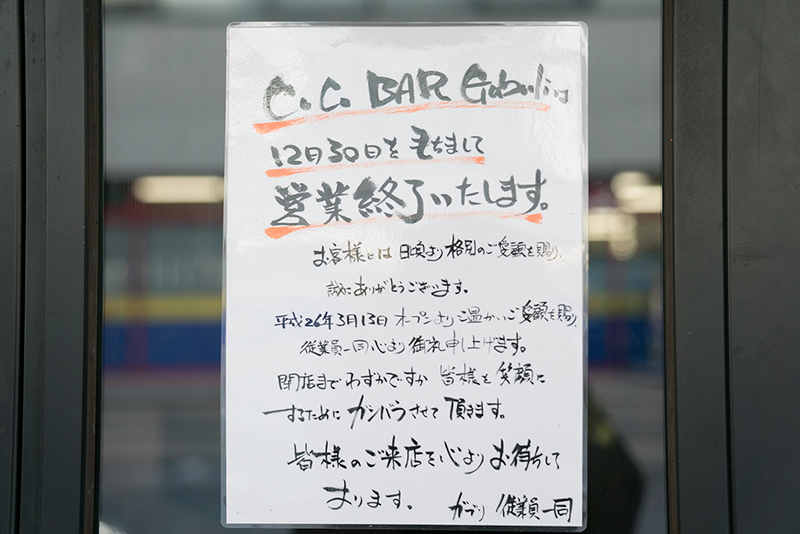 C.C. BAR Gabuling
12月30日をもちまして
営業終了いたします。
お客様には日頃より格別のご愛顧を賜り、
誠にありがとうございます。
平成26年3月13日オープンより温かいご愛顧を賜り、
従業員一同心より御礼申し上げます。
閉店までわずかですが皆様を笑顔に
するためにガンバラさせて頂きます。
皆様のご来店を心よりお待ちして
おります。
ガブリ 従業員一同